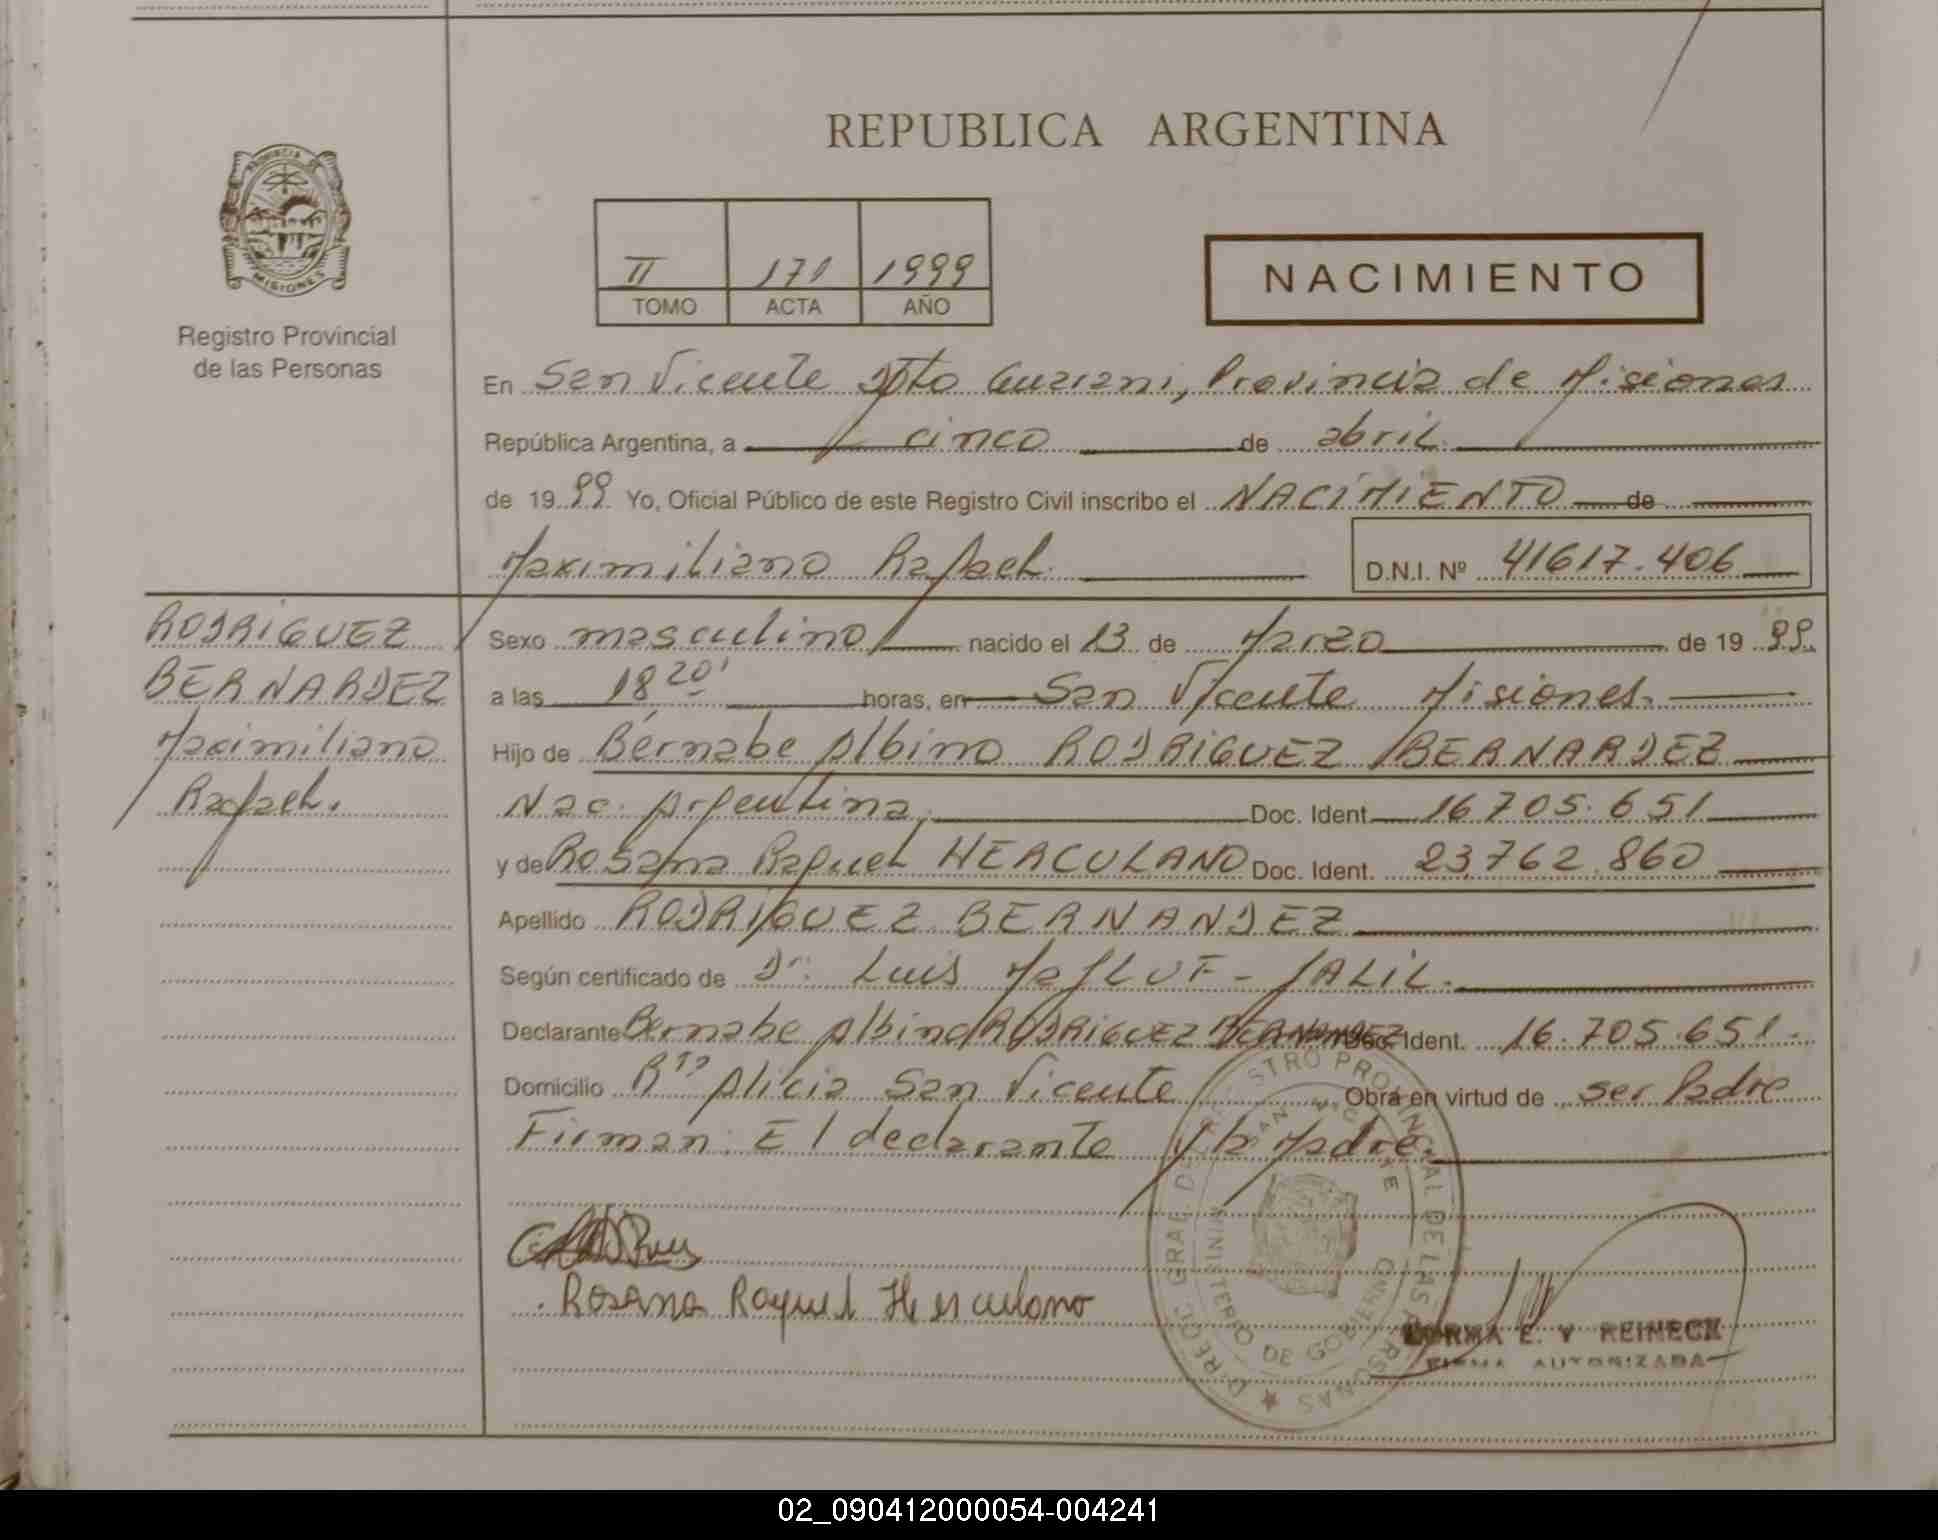 REPUBLICA ARGENTINA
PROVINCIA DE
MISIONES
Registro Provincial
de las Personas
II 171 1999
TOMO ACTA AÑO
NACIMIENTO
En San Vicente Dto Guarani, Provincia de Misiones
República Argentina, a cinco de abril.
de 1999 Yo, Oficial Público de este Registro Civil inscribo el NACIMIENTO de
Maximiliano Rafael. D.N.I. Nº 41617.406
RODRIGUEZ
BERNARDEZ
Maximiliano
Rafael.
Sexo masculino nacido el 13 de Marzo de 1999.
a las 18 20' horas, en San Vicente Misiones.
Hijo de Bernabe Albino RODRIGUEZ BERNARDEZ
Nac. Argentina, Doc. Ident. 16 705.651
y de Rosana Raquel HERCULANO Doc. Ident. 23,762.860
Apellido RODRIGUEZ BERNANDEZ
Según certificado de Dr. Luis JALIL.
Declarante Bernabe Albino RODRIGUEZ BERNANDEZ Doc. Ident. 16.705.651.
Domicilio Bº Alicia San Vicente Obra en virtud de ser Padre
Firman: El declarante y la Madre.
Rosana Raquel Herculano
DIREC. GRAL. DEL REGISTRO PROVINCIAL DE LAS PERSONAS
SAN VICENTE
MINISTERIO DE GOBIERNO
NORMA E. Y REINECK
FIRMA AUTORIZADA
02_090412000054-004241